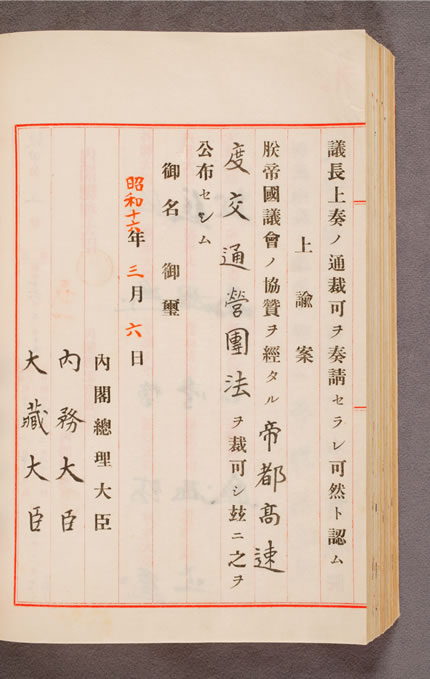 議長上奏ノ通裁可ヲ奏請セラレ可然ト認ム
上諭案
朕帝國議會ノ協贊ヲ經タル帝都高速
度交通營團法ヲ裁可シ玆ニ之ヲ
公布セシム
御名御璽
昭和十六年三月六日
內閣總理大臣
內務大臣
大藏大臣